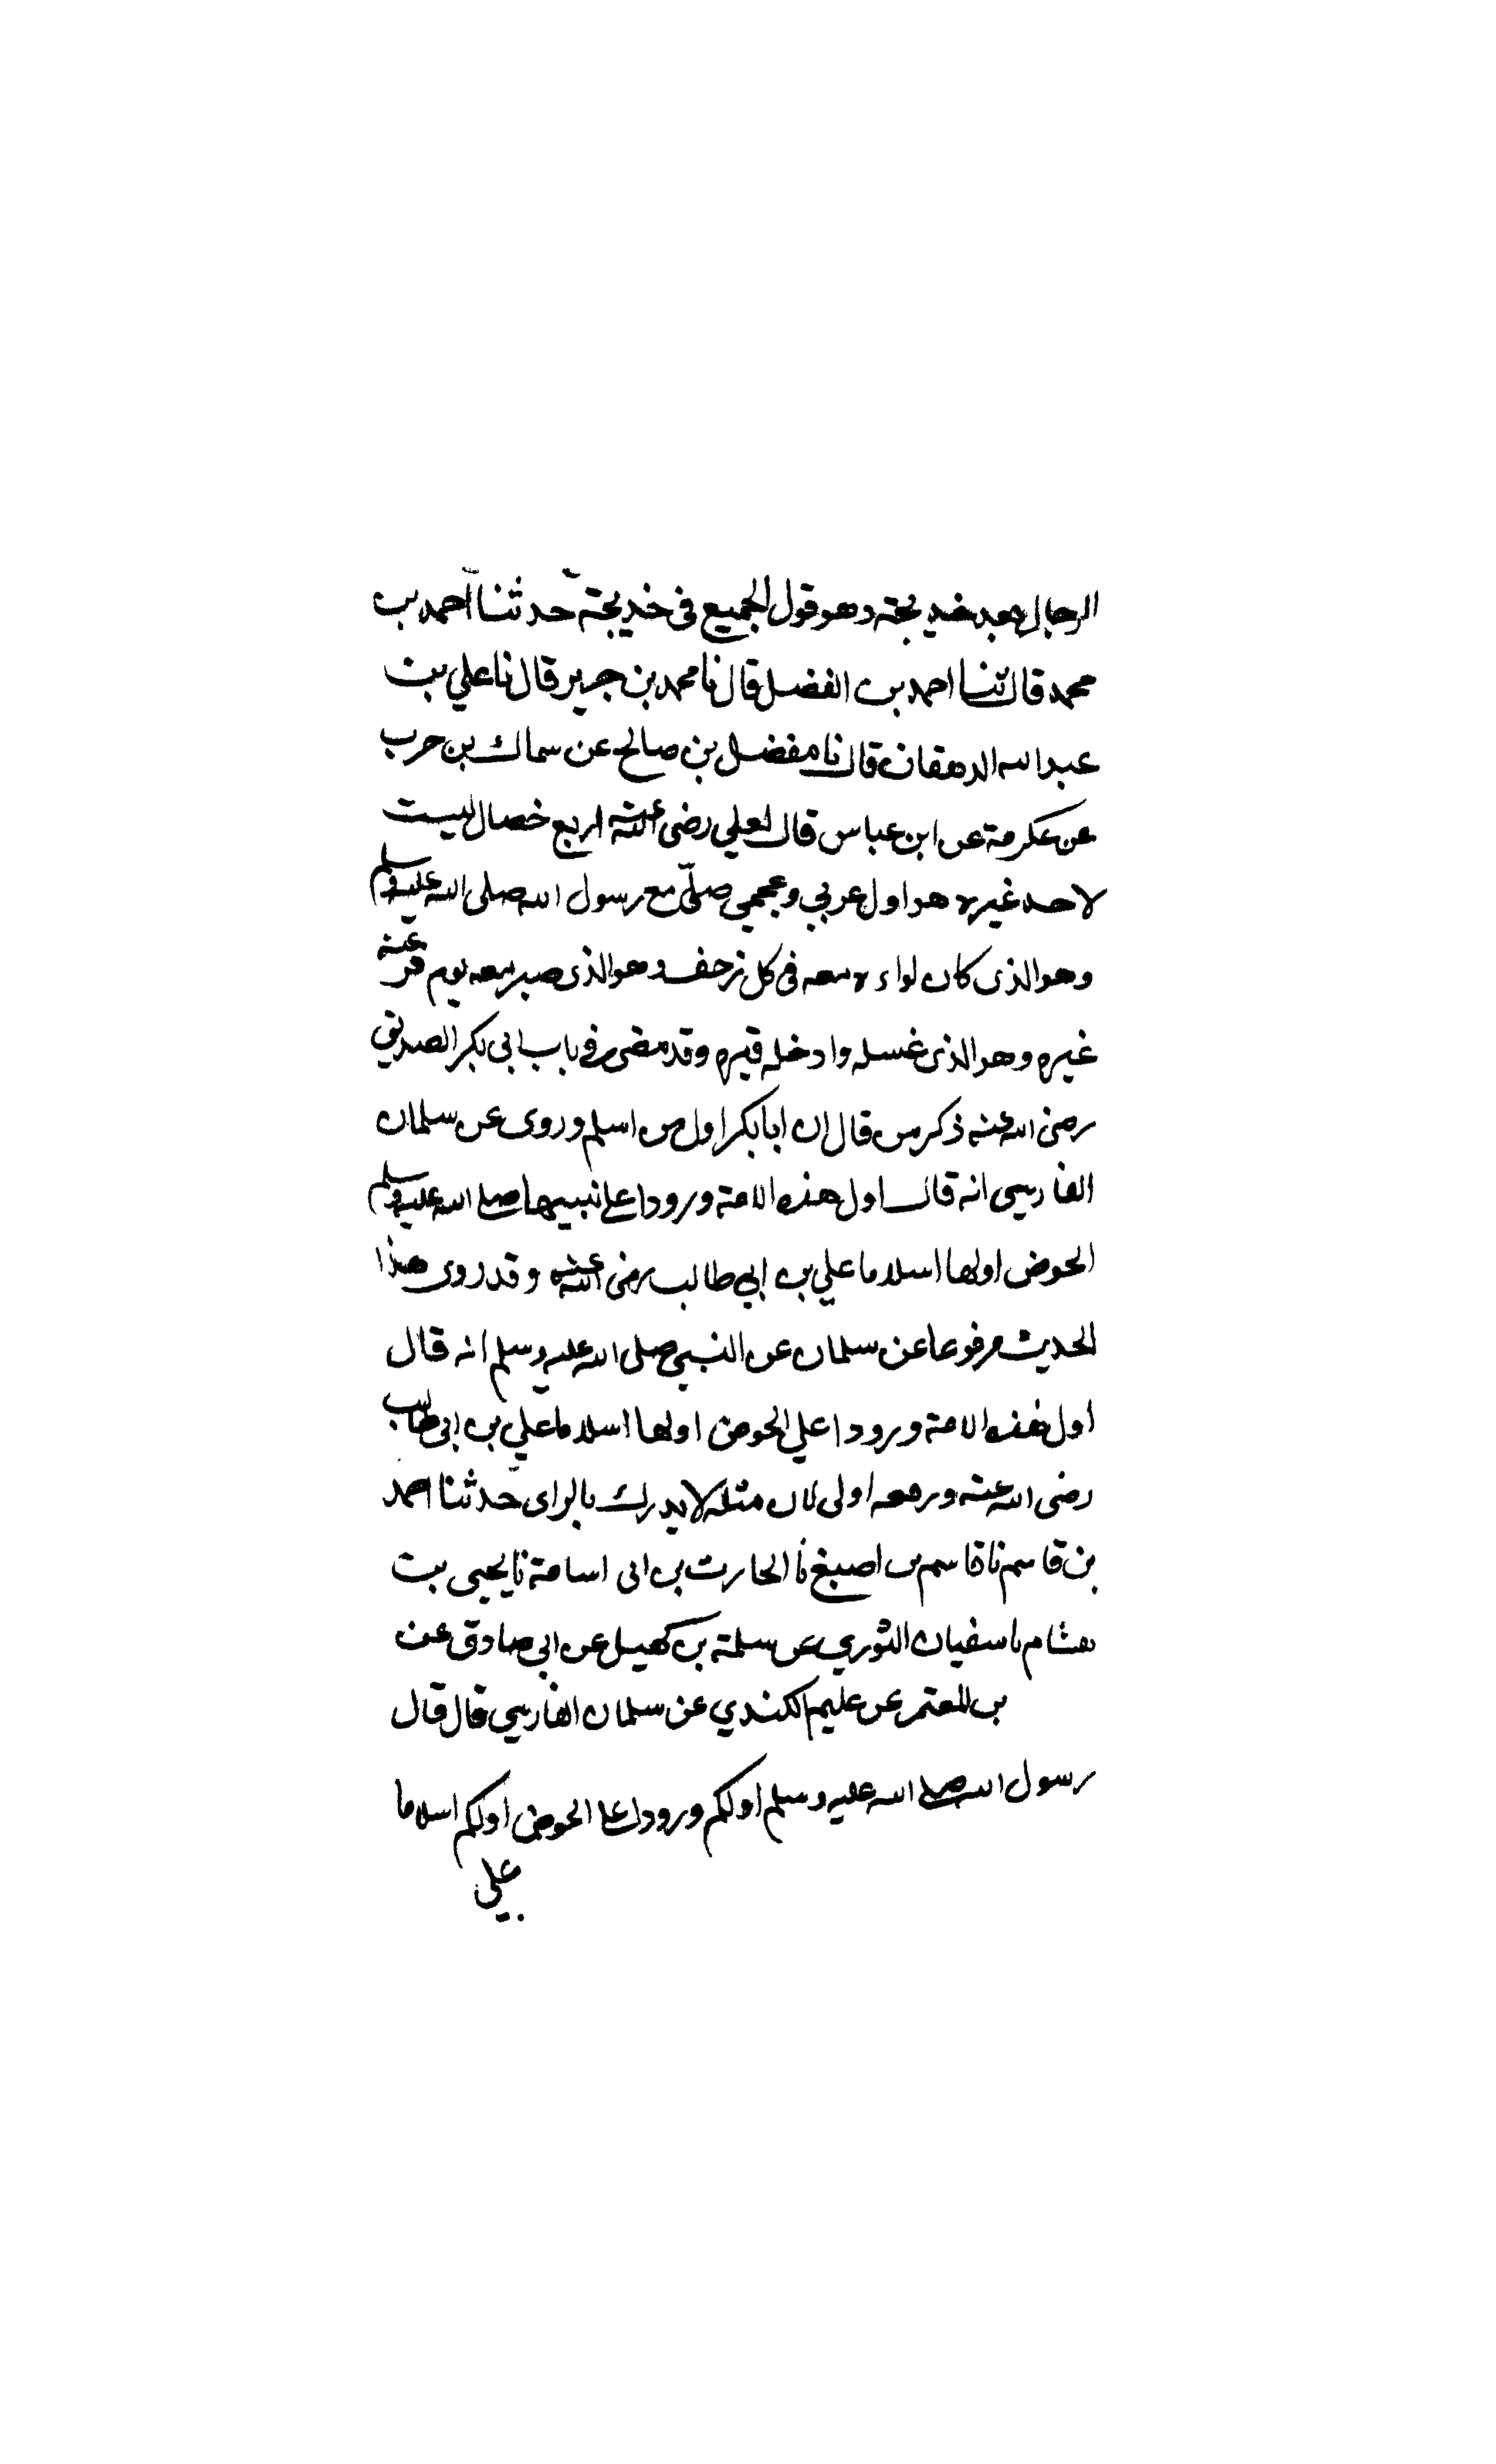 الرجال بعد خديجة وهو قول الجميع فى خديجة حدثنا احمد بن
محمد قال ثنا احمد بن الفضل قال نا محمد بن جرير قال نا علي بن
عبد الله الدهقان قال نا مفضل بن صالح عن سماك بن حرب
عن عكرمة عن ابن عباس قال لعلي رضى الله عنه اربع خصال ليست
لاحد غيره هو اول عربي وعجمي صلّى مع رسول الله صلى الله عليه وسلم
وهو الذى كان لواءه معه فى كل زحف وهو الذى صبر معه يوم فر عنه
غيره وهو الذى غسله وادخله قبره وقد مضى فى باب ابى بكر الصديق
رضى الله عنه ذكر من قال ان ابا بكر اول من اسلم وروى عن سلمان
الفارسى انه قال اول هذه الامة ورودا على نبيها صلى الله عليه وسلم
الحوض اولها اسلاما علي بن ابي طالب رضى الله عنه وقد روى هذا
الحديث مرفوعا عن سلمان عن النبى صلى الله عليه وسلم انه قال
اول هذه الامة ورودا علي الحوض اولها اسلاما علي بن ابى طالب
رضى الله عنه ورفعه اولى لان مثله لا يدرك بالراى حدثنا احمد
بن قاسم نا قاسم بن اصبغ نا الحارث بن ابى اسامة نا يحيى بن
هشام نا سفيان الثوري عن سلمة بن كهيل عن ابي صادق عن
بن المعتمر عن عليم الكندي عن سلمان الفارسي قال قال
رسول الله صلى الله عليه وسلم اولكم ورودا على الحوض اولكم اسلاما
علي